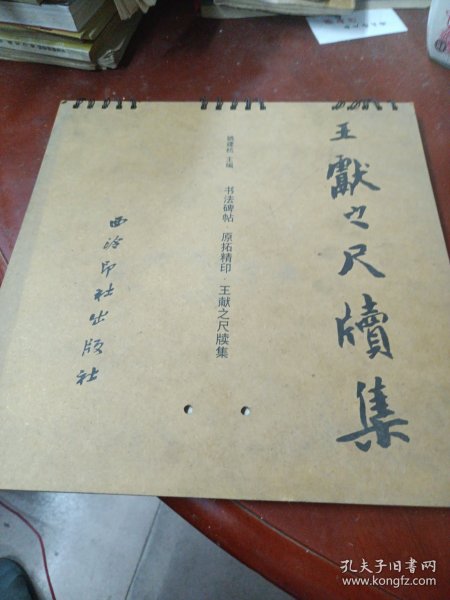 王獻之尺牘集
主编
书法碑帖·原拓精印·王献之尺牍集
西泠印社出版社
孔夫子旧书网
www.kongfz.com